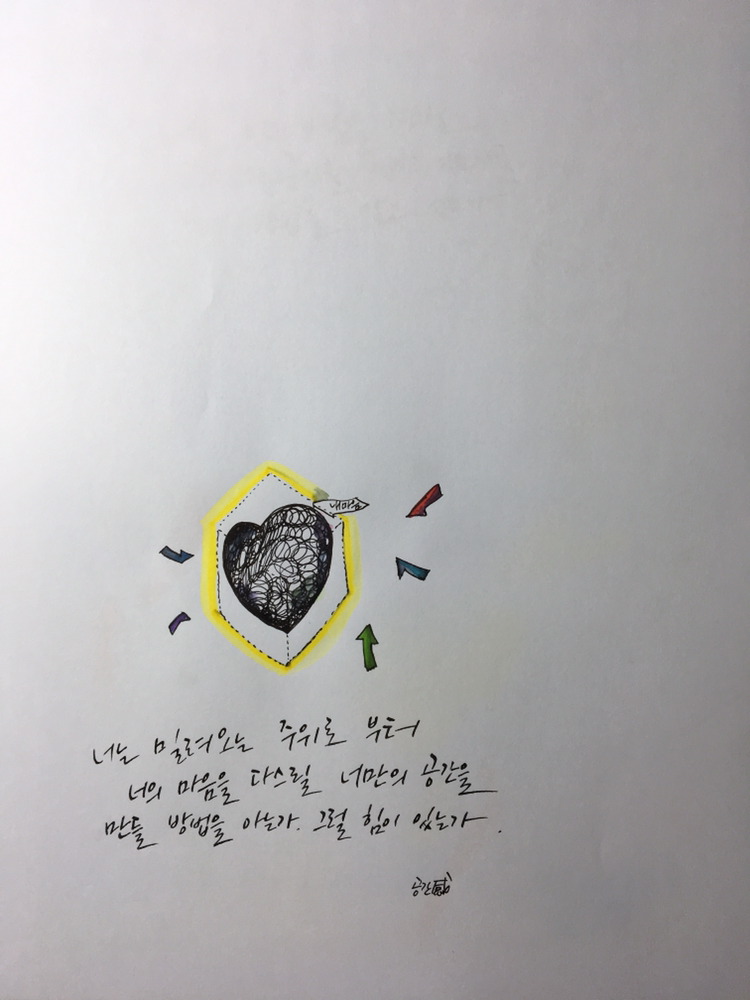 내마음
너는 밀려오는 주위로 부터
너의 마음을 다스릴 너만의 공간을
만들 방법을 아는가. 그럴 힘이 있는가.
공간感